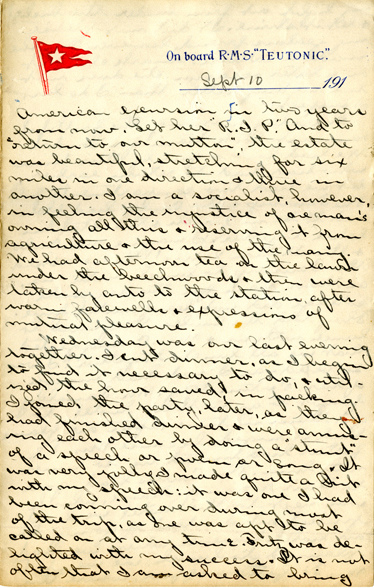 On board R·M·S·"TEUTONIC."
Sept 10 191
American excursion in two years
from now. Let her "R.I.P." And to
"return to our mutton", the estate
was beautiful, stretching for six
miles in one direction & three in
another. I am a socialist, however,
in feeling the injustice of one man's
owning all this & reserving it from
agriculture & the use of the many.
We had afternoon tea on the lawn
under the beechwoods & then were
taken by auto to the station, after
warm farewells & expressions of
mutual pleasure.
Wednesday was our last evening
together. I cut dinner, as I began
to find it necessary to do, & utili-
zed the hour saved in packing.
I joined the party later, as they
had finished dinner & were amus-
ing each other by doing a "stunt"
of a speech or poem or song. It
was very jolly. I made quite a hit
with my speech: it was one I had
been coming over during most
of the trip, as one was apt to be
called on at any time. But was de-
lighted with my success. It is not
often that I am asked to bring